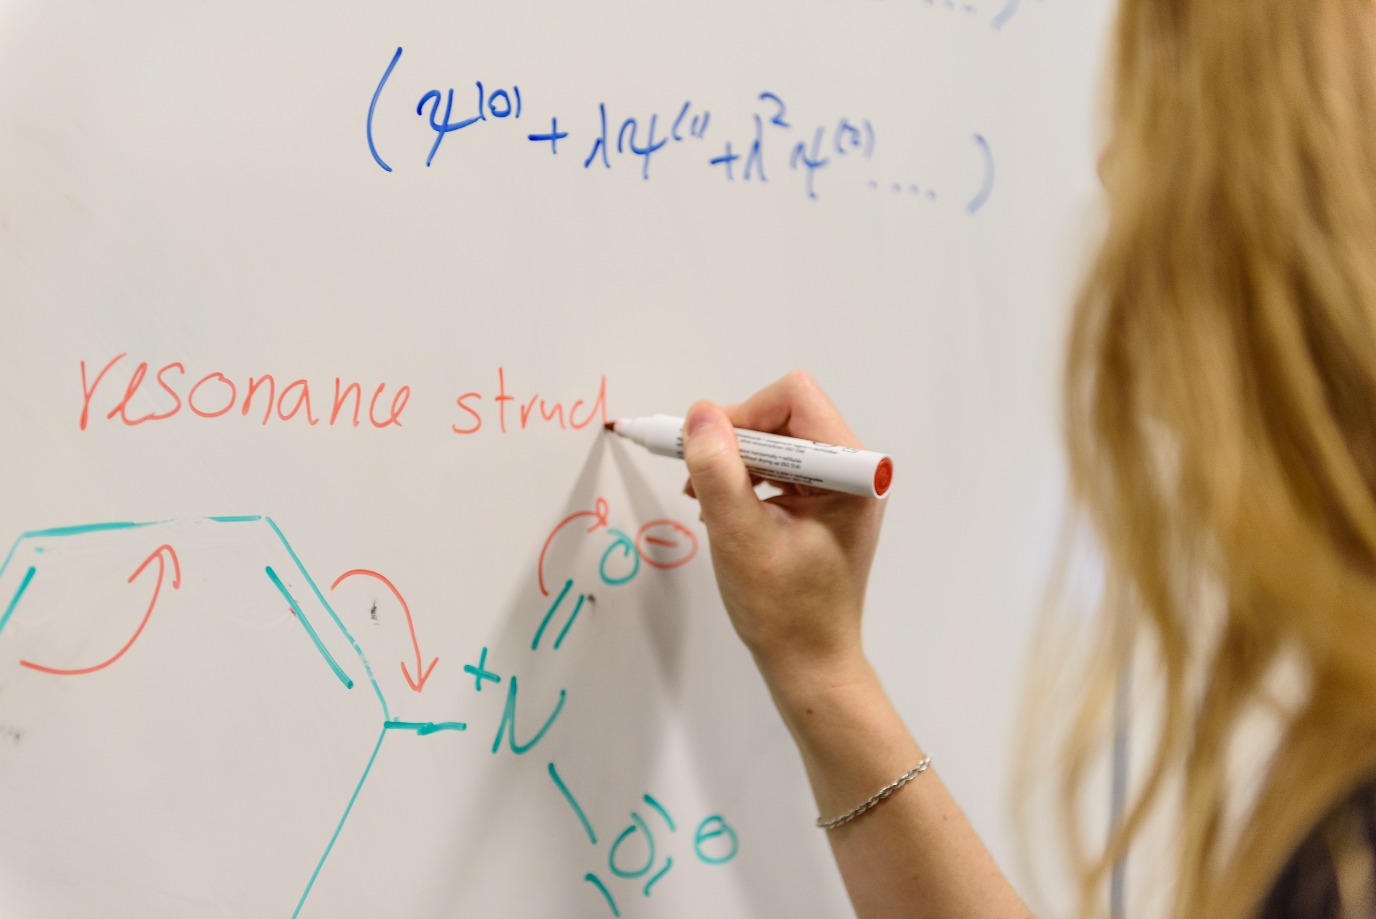 (ψ⁽⁰⁾ + λψ⁽¹⁾ + λ²ψ⁽²⁾ .... )
resonance struct
O ⊖
+
N
O ⊖